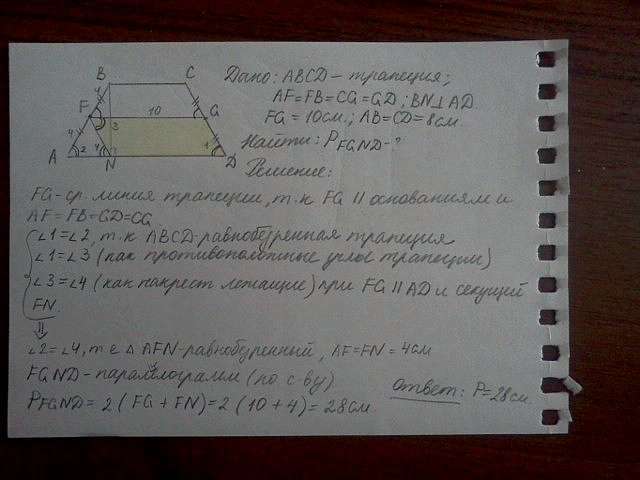 B C
Дано: ABCD - трапеция;
AF=FB=CG=GD; BN⊥AD.
FG = 10см.; AB=CD=8см.
Найти: P FGND - ?
Решение:
4
F 10 G
3
4 2 4 1
A N D
FG - ср. линия трапеции, т.к FG || основаниям и
AF = FB = GD = CG
∠1=∠2, т.к ABCD-равнобедренная трапеция
∠1=∠3 (как противоположные углы трапеции)
∠3=∠4 (как накрест лежащие) при FG || AD и секущей
FN.
⇓
∠2=∠4, т е △ AFN-равнобедренный, AF=FN = 4см
FGND - параллелограмм (по с ву)
P FGND = 2 (FG + FN) = 2 (10 + 4) = 28см
ответ: P=28см.